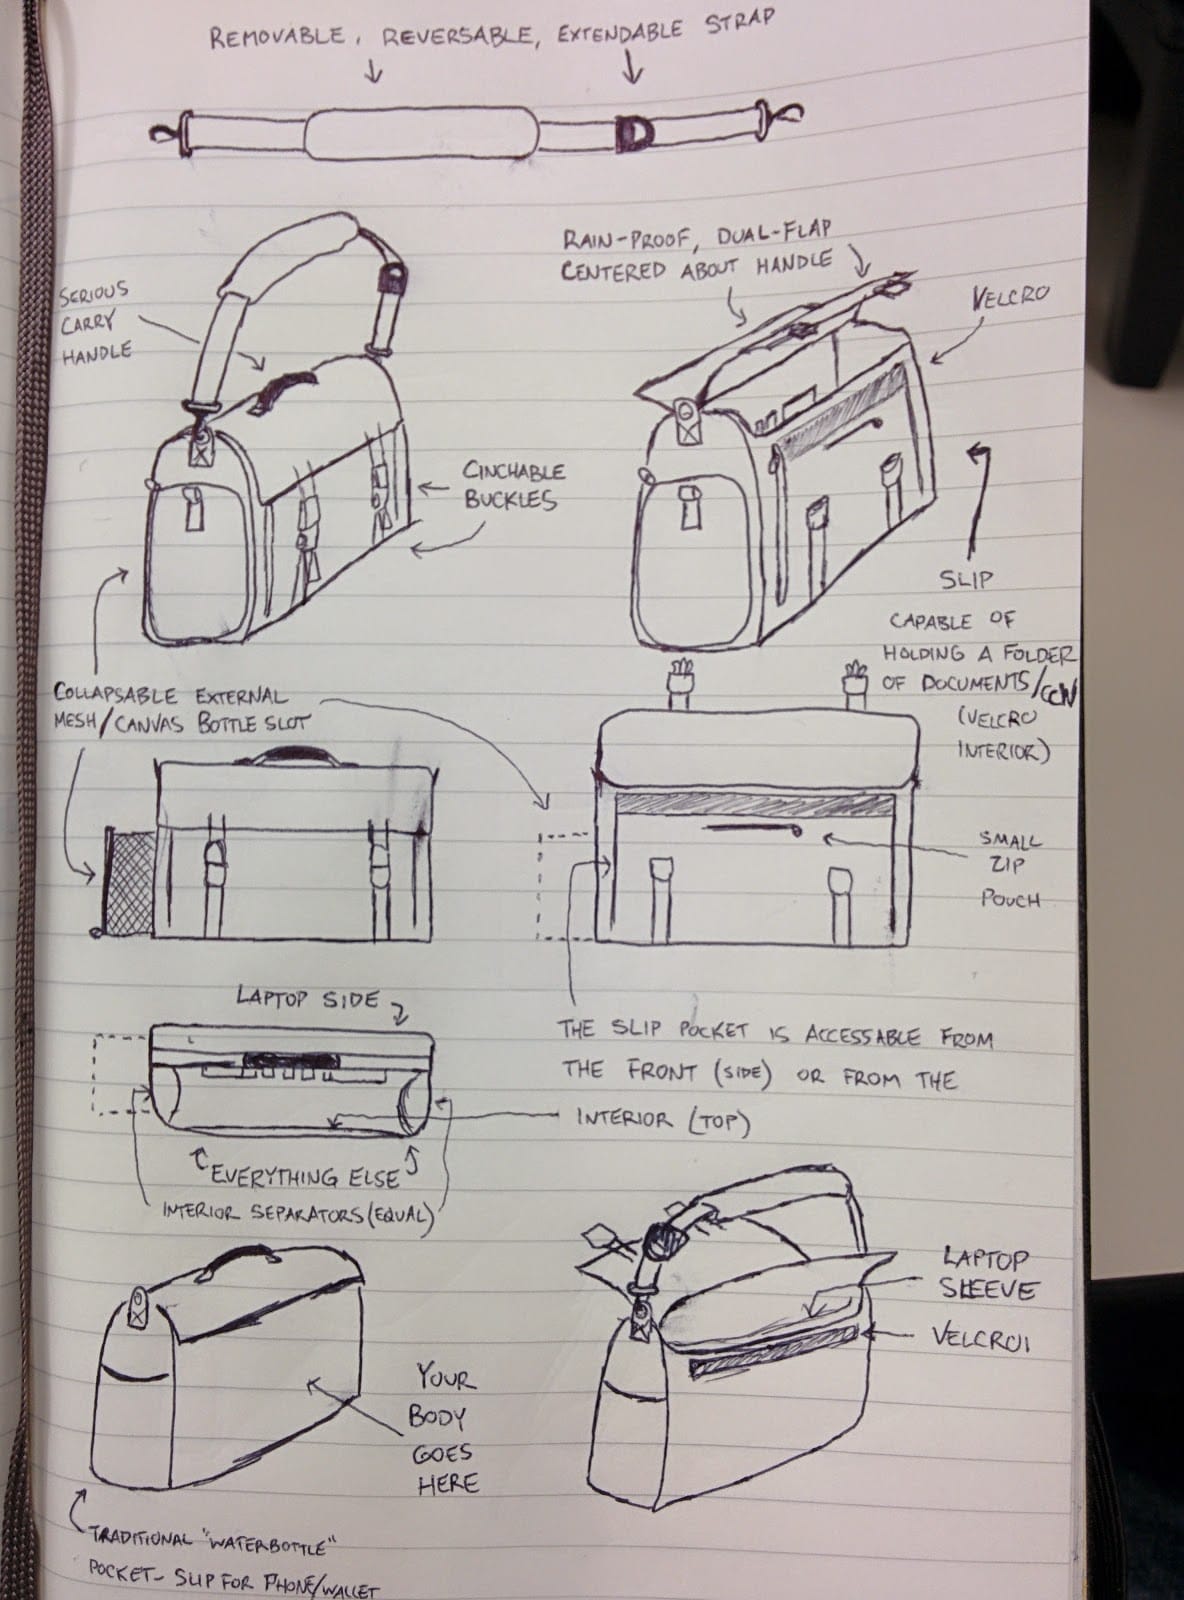 REMOVABLE, REVERSABLE, EXTENDABLE STRAP
SERIOUS
CARRY
HANDLE
RAIN-PROOF, DUAL-FLAP
CENTERED ABOUT HANDLE
VELCRO
CINCHABLE
BUCKLES
SLIP
CAPABLE OF
HOLDING A FOLDER
OF DOCUMENTS/CCW
(VELCRO
INTERIOR)
COLLAPSABLE EXTERNAL
MESH/CANVAS BOTTLE SLOT
SMALL
ZIP
POUCH
LAPTOP SIDE
THE SLIP POCKET IS ACCESSABLE FROM
THE FRONT (SIDE) OR FROM THE
INTERIOR (TOP)
EVERYTHING ELSE
INTERIOR SEPARATORS (EQUAL)
LAPTOP
SLEEVE
VELCRO!
YOUR
BODY
GOES
HERE
TRADITIONAL "WATERBOTTLE"
POCKET- SLIP FOR PHONE/WALLET